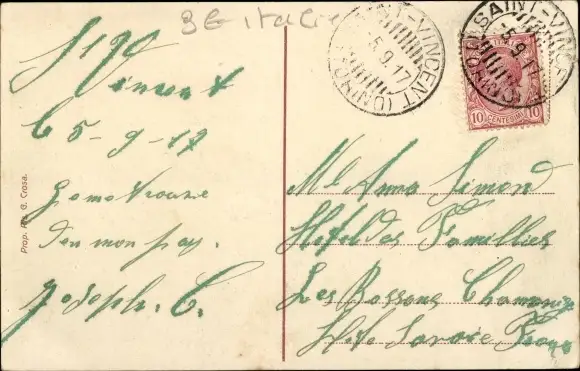 BE italie
SAINT-VINCENT (TORINO)
5.9.17
SAINT-VINCENT (TORINO)
5.9.17
10 CENTESIMI 10
St Vincent
le 5-9-17
Je me trouve
den mon pay.
Joseph. C.
Mlle Anna Simond
Hotel des Familles
Les Bossons Chamonix
Hte Savoie France
Prop. G. Crosa.